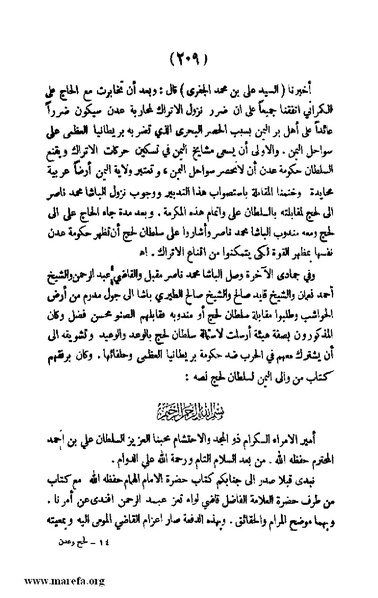 ( ٢٠٩ )
أخبرنا ( السيد على بن محمد الجفرى ) قال : وبعد أن تخابرت مع الحاج على
الكرانى اتفقنا جميعاً على ان ضرر نزول الاتراك لمحاربة عدن سيكون ضرراً
عائداً على أهل بر اليمن بسبب الحصر البحرى الذى تضربه بريطانيا العظمى على
سواحل اليمن . والاولى أن يسعى مشايخ اليمن فى تسكين حركات الاتراك ويقنع
السلطان حكومة عدن أن لاتحصر سواحل اليمن ، وتعتبر ولاية اليمن أرضاً عربية
محايدة وختمنا المقابلة باستصواب هذا التدبير ووجوب نزول الباشا محمد ناصر
الى لحج لمقابلته بالسلطان على واتمام هذه المكرمة . وبعد مدة جاء الحاج على الى
لحج ومعه مندوب الباشا محمد ناصر وأشاروا على سلطان لحج أن تظهر حكومة عدن
نفسها بمظهر القوة لكى يتمكنوا من اقناع الاتراك . اه
وفى جمادى الآخرة وصل الباشا محمد ناصر مقبل والقاضى عبد الرحمن والشيخ
أحمد نعمان والشيخ قايد صالح والشيخ صالح الطيرى باشا الى جول مدرم من أرض
الحواشب وطلبوا مقابلة سلطان لحج أو مندوبه فقابلهم الصنو محسن فضل وكان
المذكورون بصفة هيئة أرسلت لاستمالة سلطان لحج بالوعد والوعيد وتشويقه الى
أن يشترك معهم فى الحرب ضد حكومة بريطانيا العظمى وحلفائها . وكان برفقتهم
كتاب من والى اليمن لسلطان لحج نصه :
بسم الله الرحمن الرحيم
أمير الامراء الكرام ذو المجد والاحتشام محبنا العزيز السلطان على بن احمد
المحترم حفظه الله . من بعد السلام التام ورحمة الله على الدوام .
نبدى قبلا صدر الى جنابكم كتاب حضرة الامام الهام حفظه الله مع كتاب
من طرف حضرة العلامة الفاضل قاضى لواء تعز عبد الرحمن افندى عن أمرنا .
وبهما موضح المرام والحقائق . وبهذه الدفعة صار اعزام القاضى المومى اليه وبمعيته
١٤ – لحج وعدن
www.marefa.org